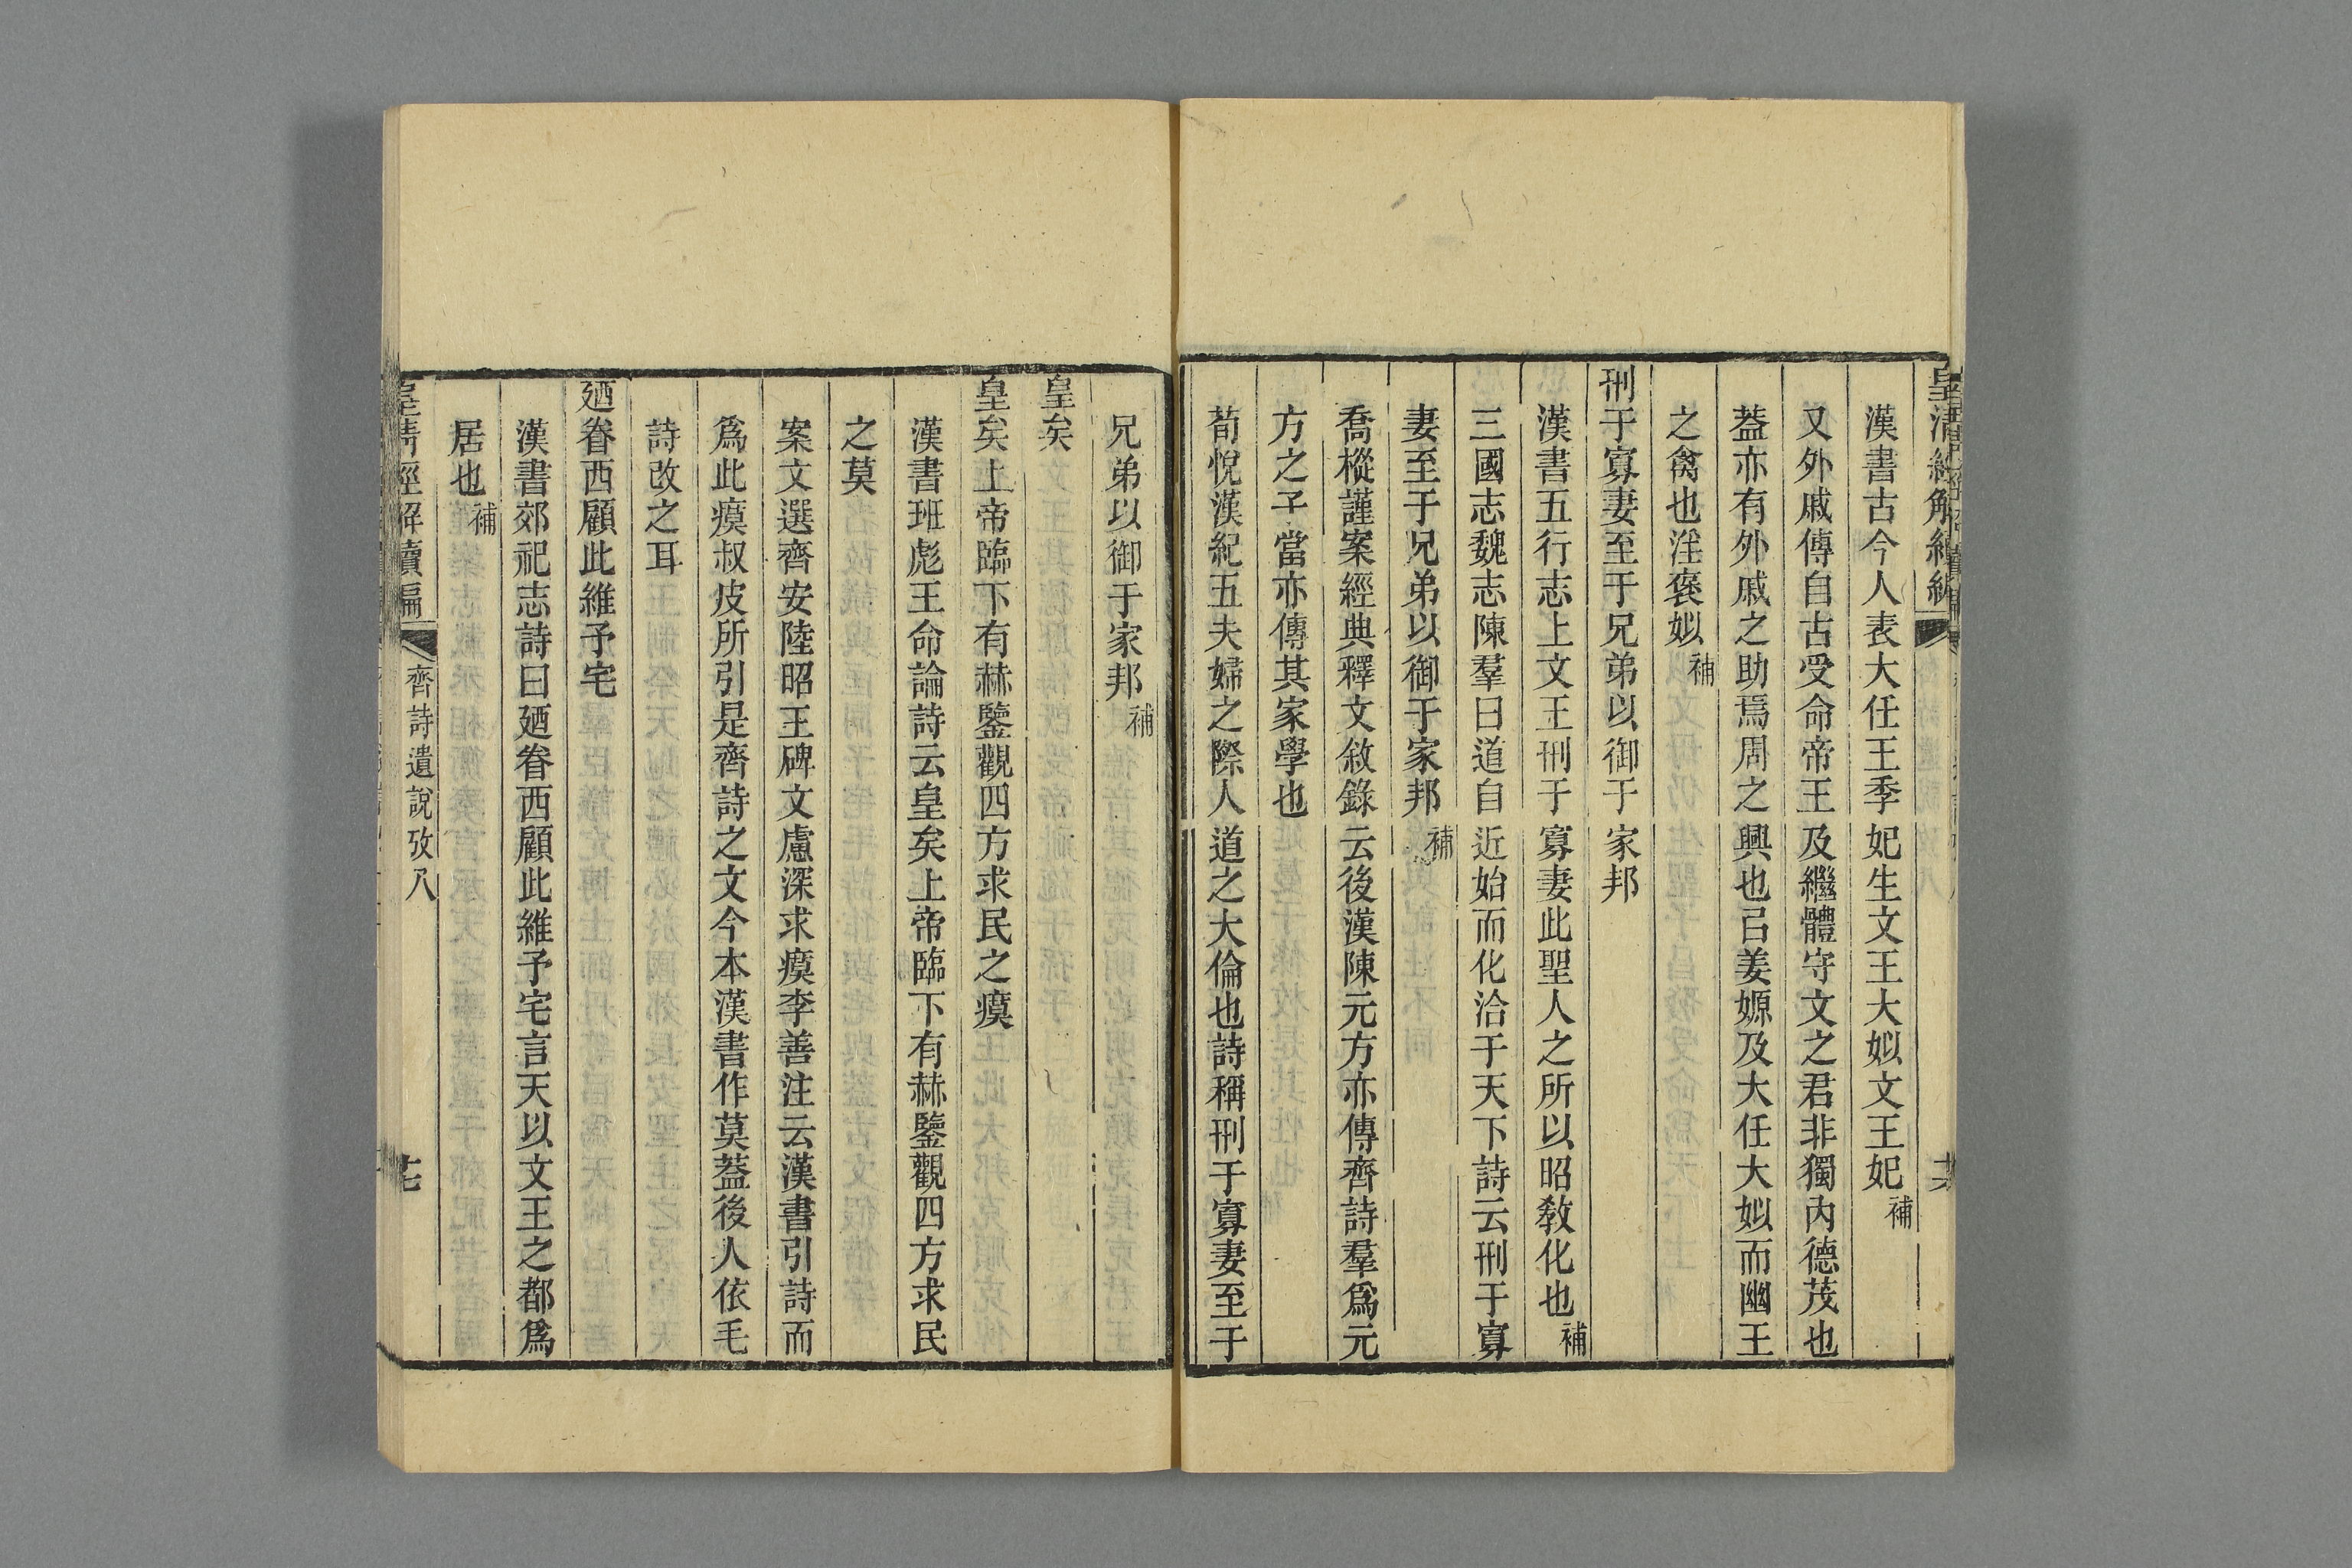 漢書古今人表大任王季妃生文王大姒文王妃補
又外戚傳自古受命帝王及繼體守文之君非獨內德茂也
葢亦有外戚之助焉周之興也㠯姜嫄及大任大姒而幽王
之禽也淫褒姒補
刑于寡妻至于兄弟以御于家邦
漢書五行志上文王刑于寡妻此聖人之所以昭教化也補
三國志魏志陳羣曰道自近始而化洽于天下詩云刑于寡
妻至于兄弟以御于家邦補
喬樅謹案經典釋文敘錄云後漢陳元方亦傳齊詩羣爲元
方之子當亦傳其家學也
荀悅漢紀五夫婦之際人道之大倫也詩稱刑于寡妻至于
兄弟以御于家邦補
皇矣
皇矣上帝臨下有赫鑒觀四方求民之瘼
漢書班彪王命論詩云皇矣上帝臨下有赫鑒觀四方求民
之莫
案文選齊安陸昭王碑文慮深求瘼李善注云漢書引詩而
爲此瘼叔皮所引是齊詩之文今本漢書作莫葢後人依毛
詩改之耳
廼眷西顧此維予宅
漢書郊祀志詩曰廼眷西顧此維予宅言天以文王之都爲
居也補
皇清經解續編
齊詩遺說攷八